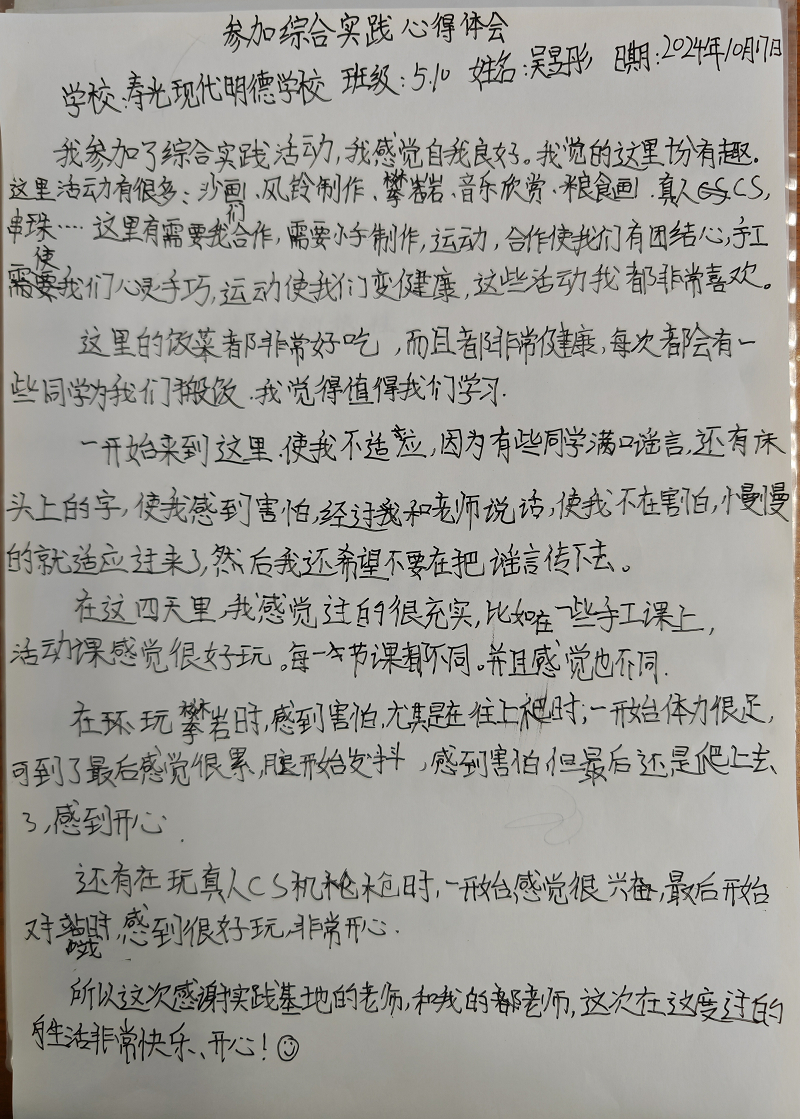 参加综合实践心得体会
学校:寿光现代明德学校 班级:5.10 姓名:吴昱彤 日期:2024年10月17日
我参加了综合实践活动,我感觉自我良好。我觉的这里十分有趣.
这里活动有很多:沙画、风铃制作、攀岩、音乐欣赏、粮食画.真人CS,
串珠……这里有需要我们合作,需要小手制作,运动,合作使我们有团结心,手工
使我们心灵手巧,运动使我们变健康,这些活动我都非常喜欢。
这里的饭菜都非常好吃,而且都非常健康,每次都会有一
些同学为我们搬饭.我觉得值得我们学习.
一开始来到这里.使我不适应,因为有些同学满口谣言,还有床
头上的字,使我感到害怕,经过我和老师说话,使我不在害怕,慢慢
的就适应过来了,然后我还希望不要在把谣言传下去。
在这四天里,我感觉过的很充实,比如在一些手工课上,
活动课感觉很好玩。每一节课都不同。并且感觉也不同.
在玩攀岩时,感到害怕,尤其是在往上爬时;一开始体力很足,
可到了最后感觉很累,腿开始发抖,感到害怕,但最后还是爬上去
了,感到开心.
还有在玩真人CS机枪时,一开始感觉很兴奋,最后开始
对战时,感到很好玩,非常开心.
所以这次感谢实践基地的老师,和我的都老师,这次在这度过的
生活非常快乐、开心!☺